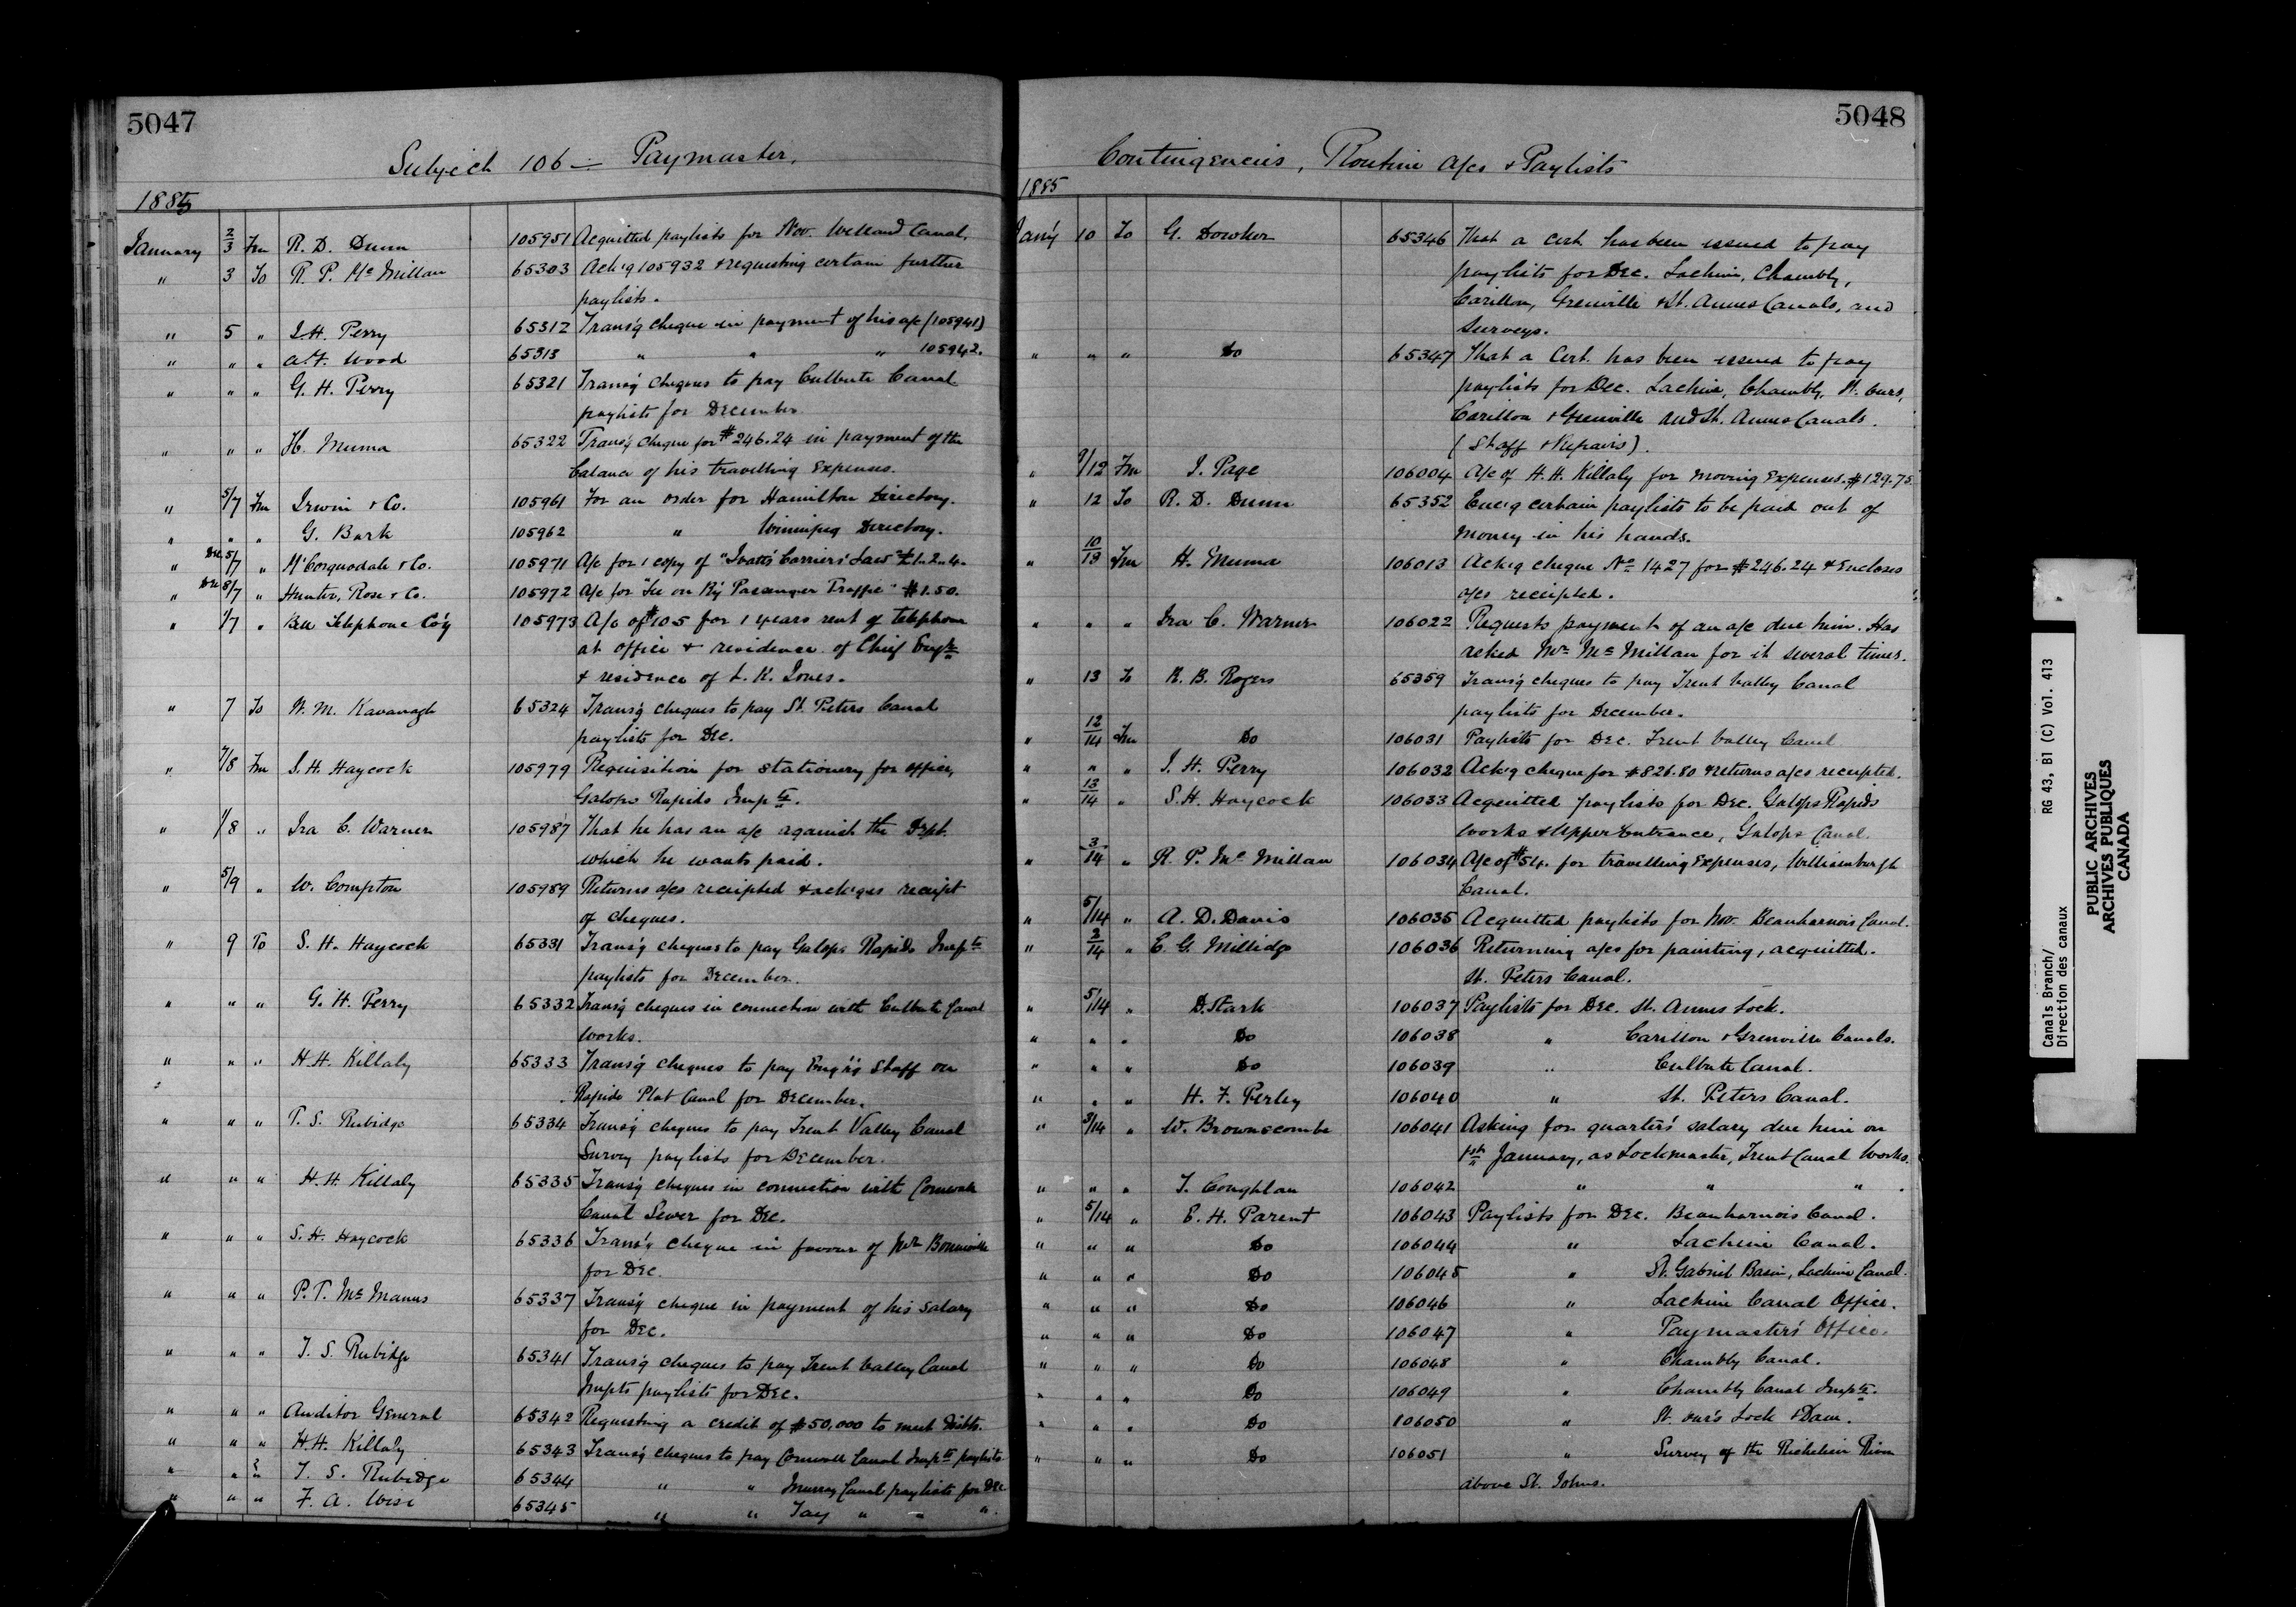 5047
Subject 106 — Paymaster.
1885
January 2/3 Fm R. D. Dunn 105951 Acquitted paylists for Nov. Welland Canal.
" 3 To R. P. McMillan 65303 Ack'g 105932 & requesting certain further
paylists.
" 5 " J. H. Perry 65312 Trans'g cheque in payment of his a/c (105941)
" " " A. F. Wood 65313 " " " 105942.
" " " G. H. Perry 65321 Trans'g cheques to pay Culbute Canal
paylists for December
" " " H. Muma 65322 Trans'g cheque for $246.24 in payment of the
balance of his travelling expenses.
" 5/7 Fm Irwin & Co. 105961 For an order for Hamilton Directory.
" " " G. Bark 105962 " Winnipeg Directory.
" Dec 5/7 " McCorquodale & Co. 105971 A/c for 1 copy of "Ivatts' Carriers' Law" £1.2.4.
" Dec 8/7 " Hunter, Rose & Co. 105972 A/c for "Lee on R'y Passenger Traffic" $1.50.
" 1/7 " Bell Telephone Co'y 105973 A/c of $105 for 1 years rent of telephone
at office & residence of Chief Eng'r
& residence of L. K. Jones.
" 7 To W. M. Kavanagh 65324 Trans'g cheques to pay St. Peters Canal
paylists for Dec.
" 7/8 Fm S. H. Haycock 105979 Requisition for stationery for office,
Galops Rapids Imp'ts.
" 1/8 " Ira C. Warner 105987 That he has an a/c against the Dept.
which he wants paid.
" 5/9 " W. Compton 105989 Returns a/cs receipted & ack'ges receipt
of cheques.
" 9 To S. H. Haycock 65331 Trans'g cheques to pay Galops Rapids Imp'ts
paylists for December.
" " " G. H. Perry 65332 Trans'g cheques in connection with Culbute Canal
works.
" " " H. H. Killaly 65333 Trans'g cheques to pay Eng'r'g Staff on
Rapide Plat Canal for December.
" " " T. S. Rubidge 65334 Trans'g cheques to pay Trent Valley Canal
Survey paylists for December.
" " " H. H. Killaly 65335 Trans'g cheques in connection with Cornwall
Canal Sewer for Dec.
" " " S. H. Haycock 65336 Trans'g cheque in favour of Mr Bonneville
for Dec.
" " " P. T. McManus 65337 Trans'g cheque in payment of his salary
for Dec.
" " " T. S. Rubidge 65341 Trans'g cheques to pay Trent Valley Canal
Impts paylists for Dec.
" " " Auditor General 65342 Requesting a credit of $50,000 to meet debts.
" " " H. H. Killaly 65343 Trans'g cheques to pay Cornwall Canal Imp'ts paylists
" " " T. S. Rubidge 65344 " " Murray Canal paylists for Dec
" " " F. A. Wise 65345 " " Tay " " ".
5048
Contingencies, Routine a/cs & Paylists
1885
Jan'y 10 To G. Dowker 65346 That a cert. has been issued to pay
paylists for Dec. Lachine, Chambly,
Carillon, Grenville & St. Annes Canals, and
Surveys.
" " " Do 65347 That a Cert. has been issued to pay
paylists for Dec. Lachine, Chambly, St. Ours,
Carillon & Grenville and St. Annes Canals.
(Staff & Repairs).
" 9/12 Fm J. Page 106004 A/c of H. H. Killaly for moving Expenses. $129.75
" 12 To R. D. Dunn 65352 Enc'g certain paylists to be paid out of
money in his hands.
" 10/13 Fm H. Muma 106013 Ack'g cheque No 1427 for $246.24 & Encloses
a/cs receipted.
" " " Ira C. Warner 106022 Requests payment of an a/c due him. Has
asked Mr McMillan for it several times.
" 13 To R. B. Rogers 65359 Trans'g cheques to pay Trent Valley Canal
paylists for December.
" 12/14 Fm Do 106031 Paylists for Dec. Trent Valley Canal
" " " J. H. Perry 106032 Ack'g cheque for $821.80 & returns a/cs receipted.
" 13/14 " S. H. Haycock 106033 Acquitted paylists for Dec. Galops Rapids
works & Upper Entrance, Galops Canal.
" 3/14 " R. P. McMillan 106034 A/c of $54. for travelling Expenses, Williamsburgh
Canal.
" 5/14 " A. D. Davis 106035 Acquitted paylists for Nov. Beauharnois Canal.
" 2/14 " E. G. Millidge 106036 Returning a/cs for painting, acquitted.
St. Peters Canal.
" 5/14 " D. Stark 106037 Paylists for Dec. St. Annes Lock.
" " " Do 106038 " Carillon & Grenville Canals.
" " " Do 106039 " Culbute Canal.
" " " H. F. Perley 106040 " St. Peters Canal.
" 3/14 " W. Brownscombe 106041 Asking for quarters' salary due him on
1st January, as Lockmaster, Trent Canal Works.
" " " T. Coughlan 106042 " " " .
" 5/14 " E. H. Parent 106043 Paylists for Dec. Beauharnois Canal.
" " " Do 106044 " Lachine Canal.
" " " Do 106045 " St. Gabriel Basin, Lachine Canal.
" " " Do 106046 " Lachine Canal Office.
" " " Do 106047 " Paymaster's Office.
" " " Do 106048 " Chambly Canal.
" " " Do 106049 " Chambly Canal Imp'ts.
" " " Do 106050 " St. Our's Lock & Dam.
" " " Do 106051 " Survey of the Richelieu River
above St. Johns.
Canals Branch/ RG 43, B1 (C) Vol. 413
Direction des canaux
PUBLIC ARCHIVES
ARCHIVES PUBLIQUES
CANADA